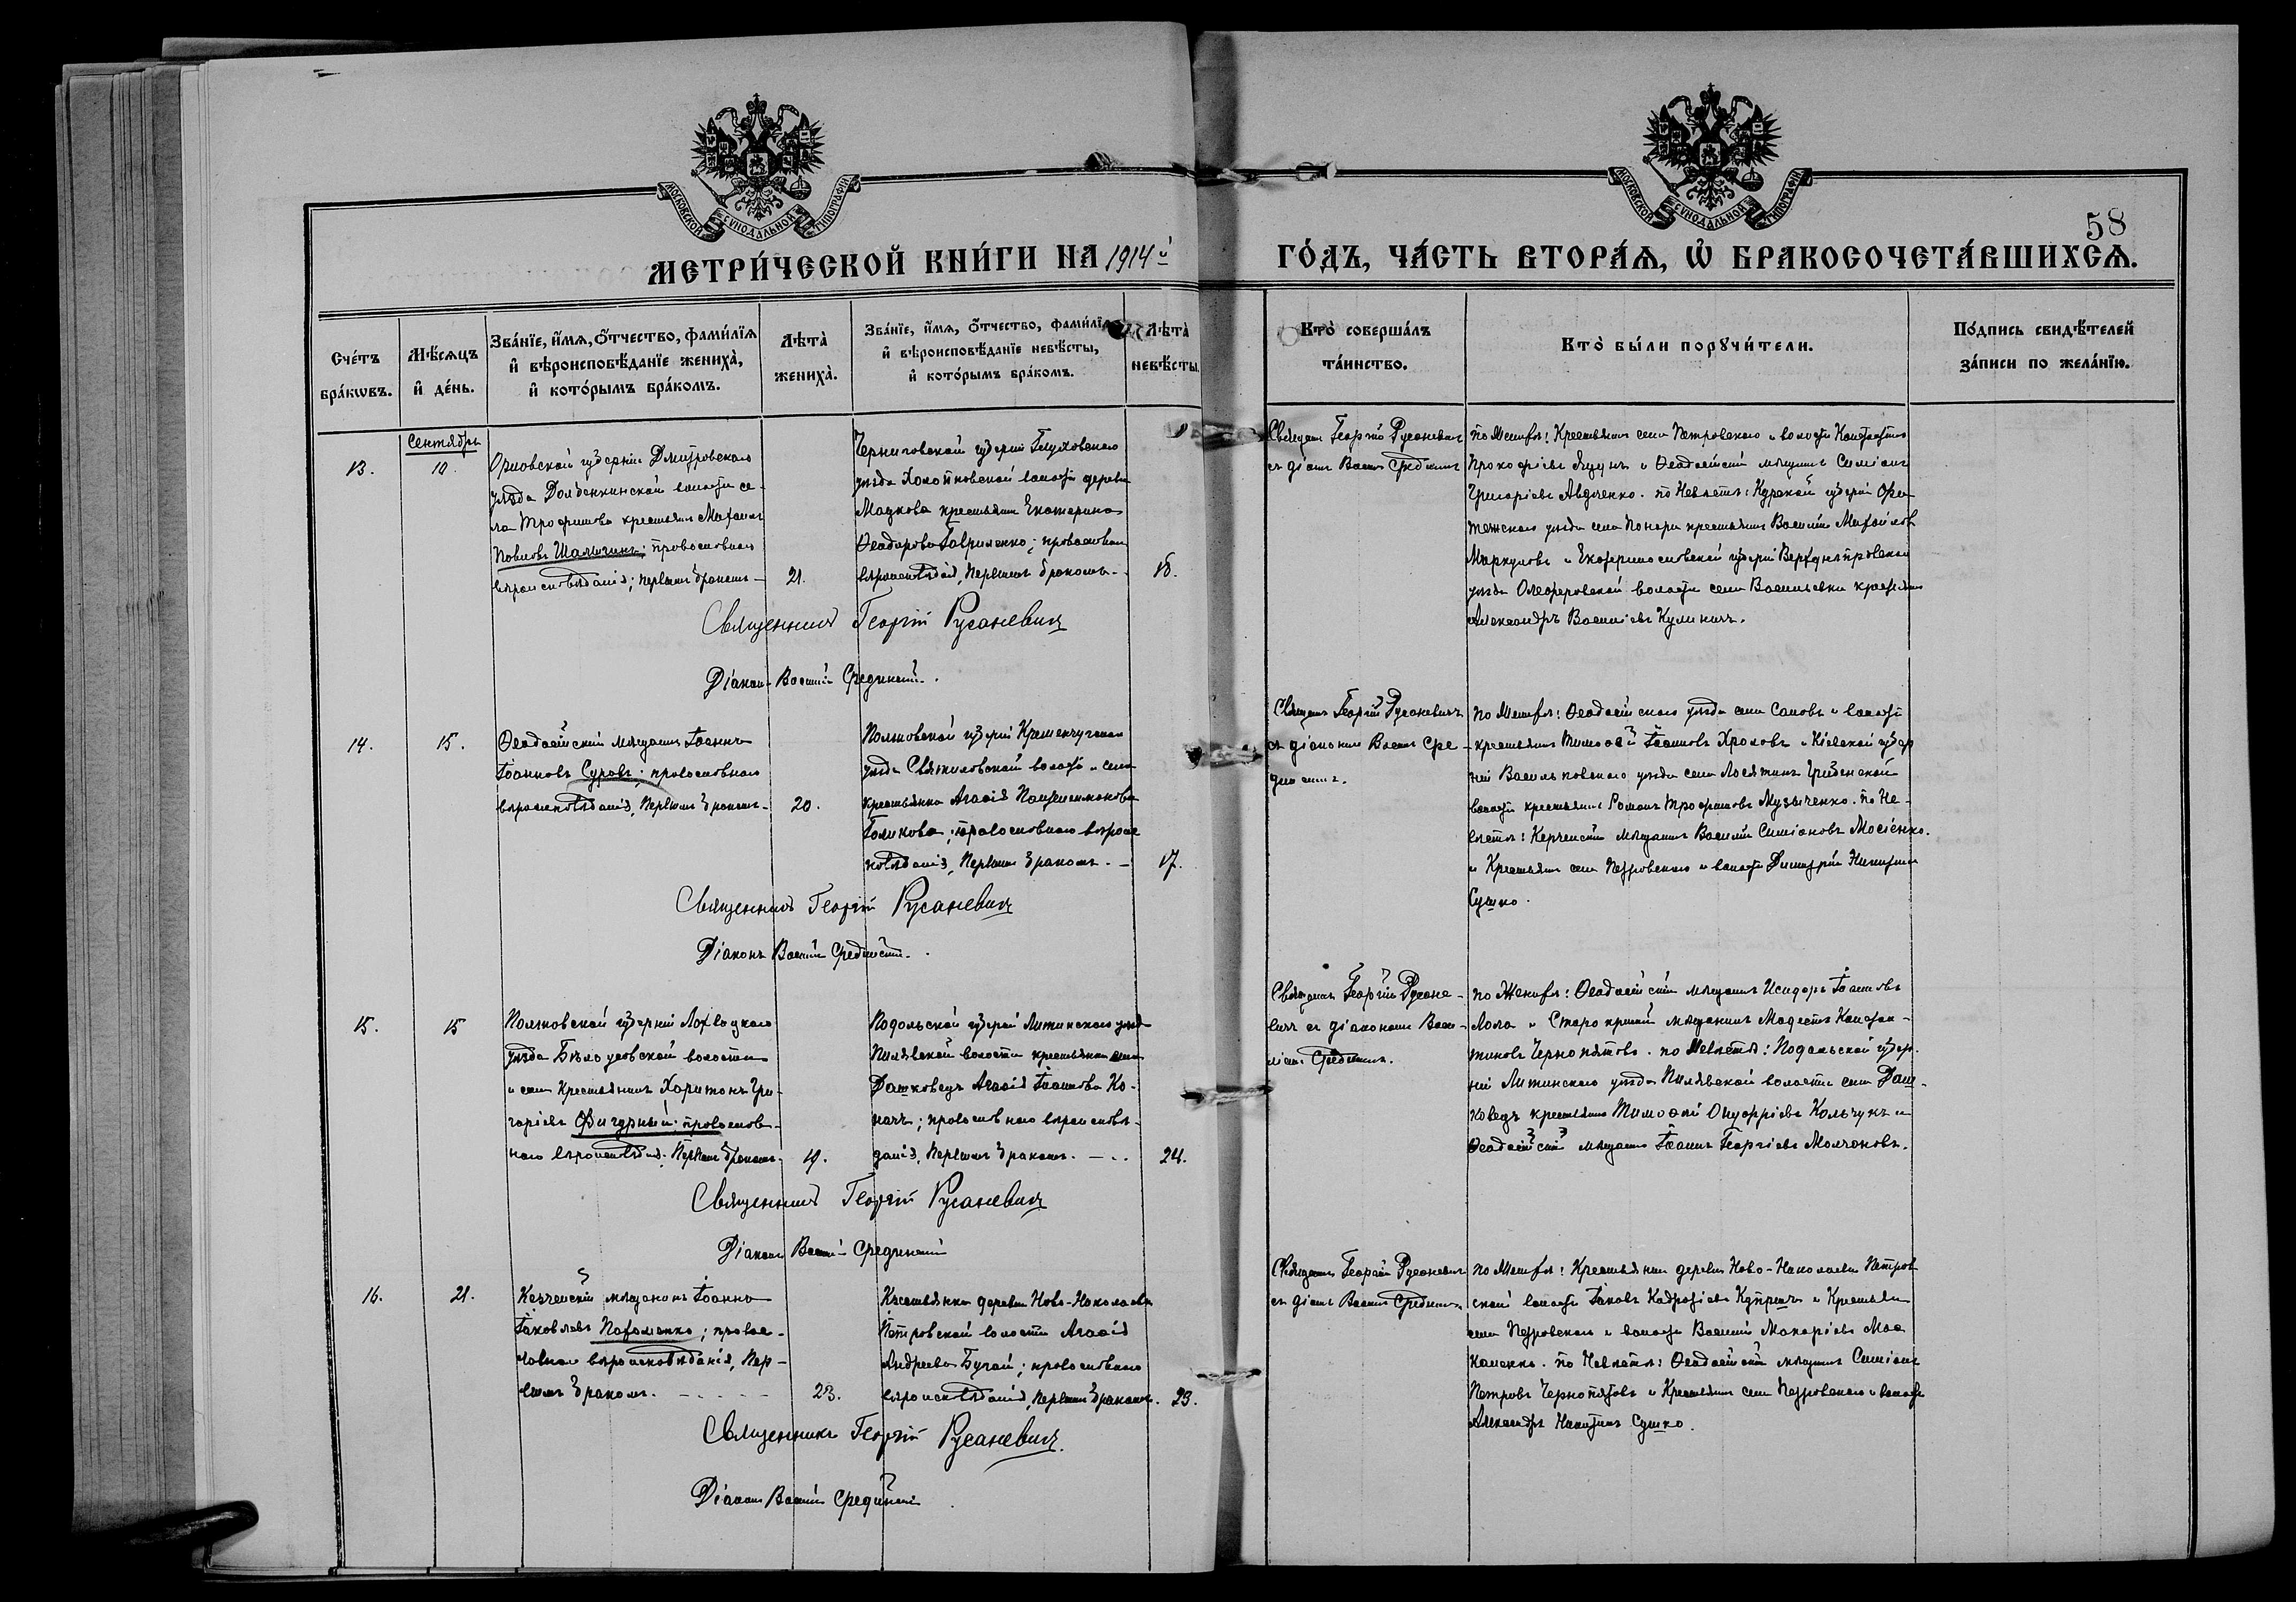 МОСКОВСКОЙ СѴНОДАЛЬНОЙ ТИПОГРАФІИ
МОСКОВСКОЙ СѴНОДАЛЬНОЙ ТИПОГРАФІИ
58
МЕТРИ́ЧЕСКОЙ КНИ́ГИ НА 1914й ГО́ДЪ, ЧА́СТЬ ВТОРА́Ѧ, Ѽ БРАКОСОЧЕТА́ВШИХСѦ.
Счéтъ бра́кѡвъ.
Мѣ́сѧцъ и҆ де́нь.
Зва́нїе, и҆́мѧ, ѻ҆́тчество, фами́лїѧ и҆ вѣроисповѣ́данїе жениха̀, и҆ кото́рымъ бра́комъ.
Лѣ́та̀ жениха̀.
Зва́нїе, и҆́мѧ, ѻ҆́тчество, фами́лїѧ и҆ вѣроисповѣ́данїе невѣ́сты, и҆ кото́рымъ бра́комъ.
Лѣ́та̀ невѣ́сты.
Кто̀ соверша́лъ та́инство.
Кто̀ бы́ли порꙋчи́тели.
По́дпись свидѣ́телей за́писи по жела́нїю.
13.
Сентябрь
10.
Орловской губерніи Дмитровскаго
уѣзда Долбенкинской волости се-
ла Трофимова крестьянинъ Михаилъ
Павловъ Шалыгинъ; православнаго
вѣроисповѣданія; первымъ бракомъ –
21.
Черниговской губерніи Глуховскаго
уѣзда Холопковской волости деревни
крестьянка Екатерина
Ѳеодорова Гавриленко; православнаго
вѣроисповѣданія, первымъ бракомъ –
18.
Священникъ Георгій Русаневичъ
съ діак. Васил. Срединским
По женихѣ: Крестьянинъ села Петровскаго и волости Константинъ
Прокофіевъ и Ѳеодосійскій мѣщанинъ Симеонъ
Григоріевъ Авдченко. по Невѣстѣ: Курской губерніи Фа-
тежскаго уѣзда села Поныри крестьянинъ Василій Михайловъ
Маркуловъ и Екатеринославской губерніи Верхнеднѣпровскаго
уѣзда волости села Васильевки крестьянинъ
Александръ Василіевъ Кулиничъ.
Священникъ Георгій Русаневичъ
Діаконъ Василій Срединскій.
14.
15.
Ѳеодосійскій мѣщанинъ Іоаннъ
Іоанновъ Суровъ; православнаго
вѣроисповѣданія, первымъ бракомъ –
20.
Полтавской губерніи Кременчугскаго
уѣзда волости и села
крестьянка Агаѳія Пантелеимонова
Голикова; православнаго вѣроис-
повѣданія, первымъ бракомъ. –
17.
Священникъ Георгій Русаневичъ
съ діакономъ Васил. Сре-
динскимъ.
По женихѣ: Ѳеодосійскаго уѣзда села Саловъ и волости
крестьянинъ Тимоѳей Іоанновъ Хроловъ и Кіевской губер-
ніи Васильковскаго уѣзда села Лосятинъ Гребенской
волости крестьянинъ Романъ Трофимовъ Музыченко. по Не-
вѣстѣ: Керченскій мѣщанинъ Василій Симеоновъ Мосіенко.
и Крестьянинъ села Петровскаго и волости Димитрій Никитинъ
Сушко.
Священникъ Георгій Русаневичъ
Діаконъ Василій Срединскій.
15.
15
Полтавской губерніи Лохвицкаго
уѣзда Бѣлоусовской волости
и села Крестьянинъ Харитонъ Гри-
горіевъ Фигурный; православ-
наго вѣроисповѣданія, первымъ бракомъ.
19.
Подольской губерніи Литинскаго уѣзда
Пилявской волости крестьянка села
Дашковецъ Агаѳія Іоаннова Ко-
; православнаго вѣроисповѣ-
данія, первымъ бракомъ. – ..
24.
Священникъ Георгій Русане-
вичъ съ діакономъ Васи-
ліемъ Срединским.
по Женихѣ: Ѳеодосійскій мѣщанинъ Исидоръ Іоанновъ
Лола и Старокрымскій мѣщанинъ Модестъ Констан-
тиновъ Чернопятовъ. по Невѣстѣ: Подольской губер-
ніи Литинскаго уѣзда Пилявской волости села Даш-
ковецъ крестьянинъ Тимоѳей Онуфріевъ Кольчукъ и
Ѳеодосійскій мѣщанинъ Іоаннъ Георгіевъ Молчановъ.
Священникъ Георгій Русаневичъ
Діаконъ Василій Срединскій
16.
21.
Керченскій мѣщанинъ Іоаннъ
Іаковлевъ Пахоменко; правос-
лавнаго вѣроисповѣданія, пер-
вымъ бракомъ. – – – –
23.
Крестьянка деревни Ново-Николаевки
Петровской волости Агаѳія
Андреева Бугай; православнаго
вѣроисповѣданія, первымъ бракомъ.
23.
Священникъ Георгій Русаневичъ
съ діак. Васил. Срединским
по женихѣ: Крестьянинъ деревни Ново-Николаевки Петров-
ской волости Іаковъ и Крестьянинъ
села Петровскаго и волости Василій Макаріевъ Мос-
каленко. по Невѣстѣ: Ѳеодосійскій мѣщанинъ Симеонъ
Петровъ Чернопятовъ и Крестьянинъ села Петровскаго и волости
Александръ Никитинъ Сушко.
Священникъ Георгій Русаневичъ.
Діаконъ Василій Срединскій